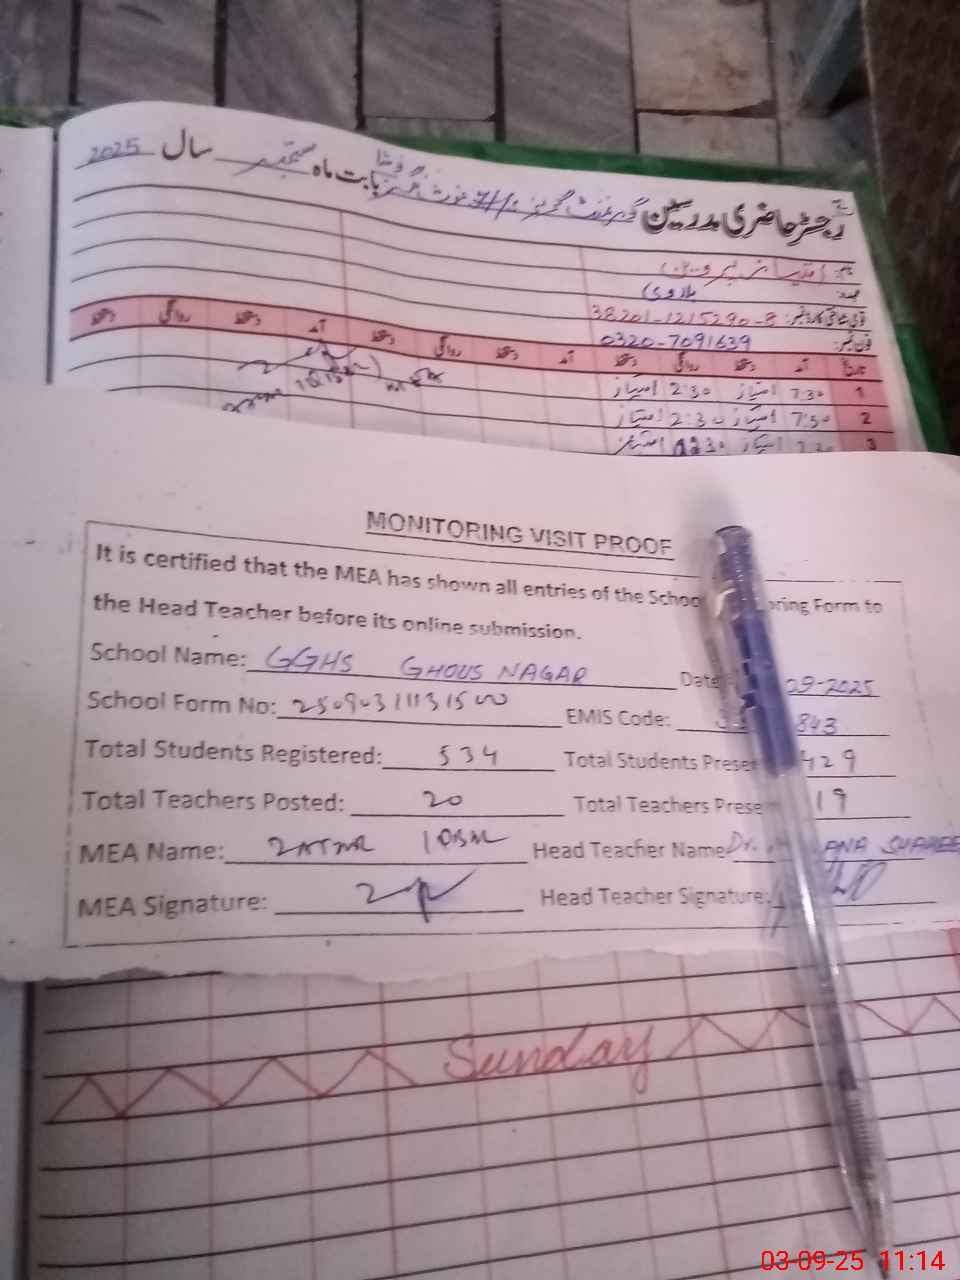 رجسٹر حاضری مدرسین گورنمنٹ گرلز بابت ماہ ستمبر سال 2025
نام:
عہدہ:
قومی شناختی کارڈ نمبر: 38201-1215290-8
فون نمبر: 0320-7091639
تاریخ آمد دستخط روانگی دستخط آمد دستخط روانگی دستخط آمد دستخط روانگی دستخط
1 7:30 امتیاز 2:30 امتیاز
2 7:30 امتیاز 2:30 امتیاز
3 7:30 امتیاز
MONITORING VISIT PROOF
It is certified that the MEA has shown all entries of the School Form to
the Head Teacher before its online submission.
School Name: GGHS GHOUS NAGAR Date 09-2025
School Form No: EMIS Code: 843
Total Students Registered: 534 Total Students Present 429
Total Teachers Posted: 20 Total Teachers Present 19
MEA Name: Head Teacher Name Dr.
MEA Signature: Head Teacher Signature:
Sunday
03-09-25 11:14